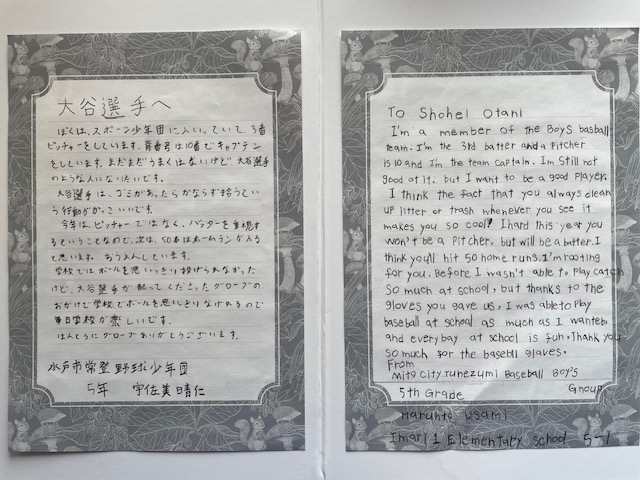 大谷選手へ
ぼくは、スポーツ少年団に入いっていて、3番
ピッチャーをしています。背番号は10番でキャプテン
をしています。まだまだうまくはないけど、大谷選手
のような人になりたいです。
大谷選手は、ゴミがあったらかならず拾うてい
う行動がかっこいいです。
今年は、ピッチャーではなく、バッターを重視す
るということなので、次は、50本はホームランが入る
と思います。おうえんしています。
学校ではボールを思いっきり投げられなかった
けど、大谷選手が配ってくださったグローブの
おかげで学校でボールを思いっきりなげれるので
毎日学校が楽しいです。
ほんとうにグローブありがとうございます。
水戸市常登野球少年団
5年 宇佐美日晴仁
To Shohei Otani
I'm a member of the Boys basball
team. I'm the 3rd batter and a Pitcher
is 10 and I'm the team captain. Im Still not
good at it. but I want to be a good Player.
I think the fact that you always clean
up litter or trash whenever you see it
makes you so cool! I hard this year you
won't be a Pitcher, but will be a batter. I
think you'll hit 50 home runs. I'm rooting
for you. Before I wasn't able to play catch
so much at school, but thanks to the
gloves you gave us, I was able to Play
baseball at school as much as I wanted
and everybay at school is fun, Thank you
so much for the basebll glaves.
From
Mito City.Tunezumi Baseball Boy's
Gnoup
5th Grade
Haruhto Usami
Imari 1 Elementary school 5-1